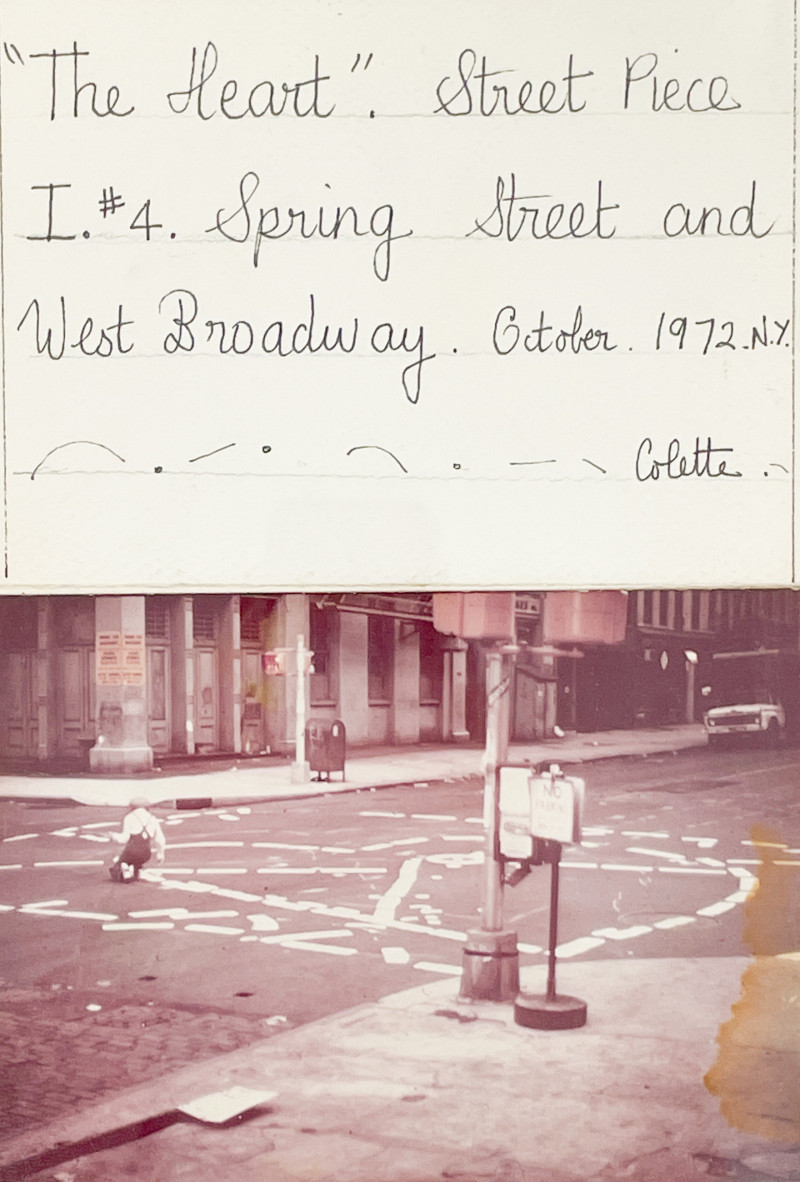 "The Heart". Street Piece
I. #4. Spring Street and
West Broadway. October. 1972. N.Y.
Colette.
NO